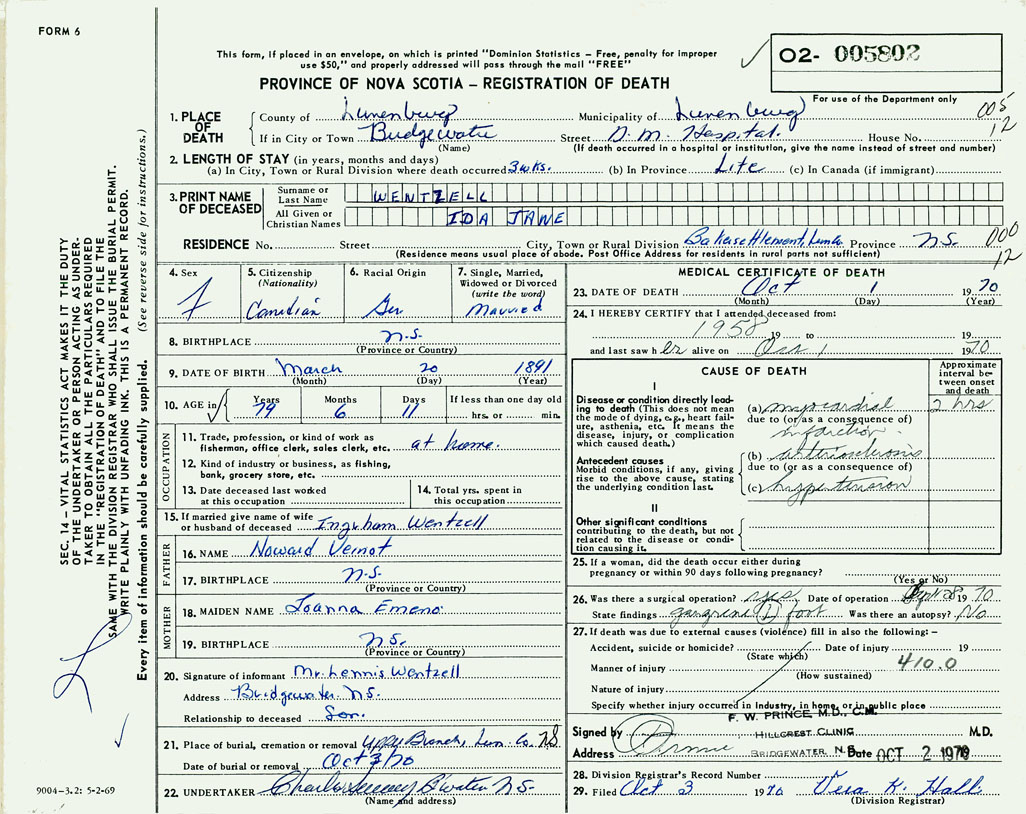 FORM 6
This form, if placed in an envelope, on which is printed "Dominion Statistics – Free, penalty for improper
use $50," and properly addressed will pass through the mail "FREE"
O2- 005802
PROVINCE OF NOVA SCOTIA – REGISTRATION OF DEATH
For use of the Department only
005
12
1. PLACE OF DEATH
County of Lunenburg Municipality of Lunenburg
If in City or Town Bridgewater Street D. M. Hospital. House No.
(Name) (If death occurred in a hospital or institution, give the name instead of street and number)
2. LENGTH OF STAY (in years, months and days)
(a) In City, Town or Rural Division where death occurred 3 wks. (b) In Province Life (c) In Canada (if immigrant)
3. PRINT NAME OF DECEASED
Surname or Last Name WENTZELL
All Given or Christian Names IDA JANE
RESIDENCE No. Street City, Town or Rural Division Baker Settlement, Lun Co Province N.S.
000
12
(Residence means usual place of abode. Post Office Address for residents in rural parts not sufficient)
4. Sex f
5. Citizenship (Nationality) Canadian
6. Racial Origin Ger
7. Single, Married, Widowed or Divorced (write the word) Married
8. BIRTHPLACE N.S.
(Province or Country)
9. DATE OF BIRTH March 20 1891
(Month) (Day) (Year)
10. AGE in Years 79 Months 6 Days 11 If less than one day old
hrs. or min.
OCCUPATION
11. Trade, profession, or kind of work as
fisherman, office clerk, sales clerk, etc. at home.
12. Kind of industry or business, as fishing,
bank, grocery store, etc.
13. Date deceased last worked
at this occupation
14. Total yrs. spent in
this occupation
15. If married give name of wife
or husband of deceased Ingraham Wentzell
FATHER
16. NAME Howard Veinot
17. BIRTHPLACE N.S.
(Province or Country)
MOTHER
18. MAIDEN NAME Joanna Emeno
19. BIRTHPLACE N.S.
(Province or Country)
20. Signature of informant Mr. Lennis Wentzell
Address Bridgewater N.S.
Relationship to deceased Son.
21. Place of burial, cremation or removal Upper Branch, Lun. Co. NS
Date of burial or removal Oct 3/70
22. UNDERTAKER B'water N.S.
(Name and address)
MEDICAL CERTIFICATE OF DEATH
23. DATE OF DEATH Oct 1 1970
(Month) (Day) (Year)
24. I HEREBY CERTIFY that I attended deceased from:
1958 19 to 19
and last saw her alive on Oct 1 1970
CAUSE OF DEATH
Approximate interval between onset and death
I
Disease or condition directly leading to death (This does not mean the mode of dying, e.g., heart failure, asthenia, etc. It means the disease, injury, or complication which caused death.)
(a) myocardial 2 hrs
due to (or as a consequence of)
infarction
Antecedent causes
Morbid conditions, if any, giving rise to the above cause, stating the underlying condition last.
(b) arteriosclerosis
due to (or as a consequence of)
(c) hypertension
II
Other significant conditions
contributing to the death, but not related to the disease or condition causing it.
25. If a woman, did the death occur either during
pregnancy or within 90 days following pregnancy?
(Yes or No)
26. Was there a surgical operation? yes Date of operation Sept 28 1970
State findings gangrene L foot Was there an autopsy? No
27. If death was due to external causes (violence) fill in also the following: –
Accident, suicide or homicide? Date of injury 19
(State which)
Manner of injury 410.0
(How sustained)
Nature of injury
Specify whether injury occurred in Industry, in home, or in public place
F. W. PRINCE, M.D., C.M.
Signed by Prince HILLCREST CLINIC M.D.
Address BRIDGEWATER, N.S. Date OCT 2 1970
28. Division Registrar's Record Number
29. Filed Oct 3 1970 Vera K. Hall
(Division Registrar)
SEC. 14 – VITAL STATISTICS ACT MAKES IT THE DUTY
OF THE UNDERTAKER OR PERSON ACTING AS UNDER-
TAKER TO OBTAIN ALL THE PARTICULARS REQUIRED
IN THE "REGISTRATION OF DEATH" AND TO FILE THE
SAME WITH THE DIVISION REGISTRAR WHO SHALL ISSUE THE BURIAL PERMIT.
WRITE PLAINLY WITH UNFADING INK. THIS IS A PERMANENT RECORD.
Every item of information should be carefully supplied. (See reverse side for instructions.)
9004–3.2: 5-2-69